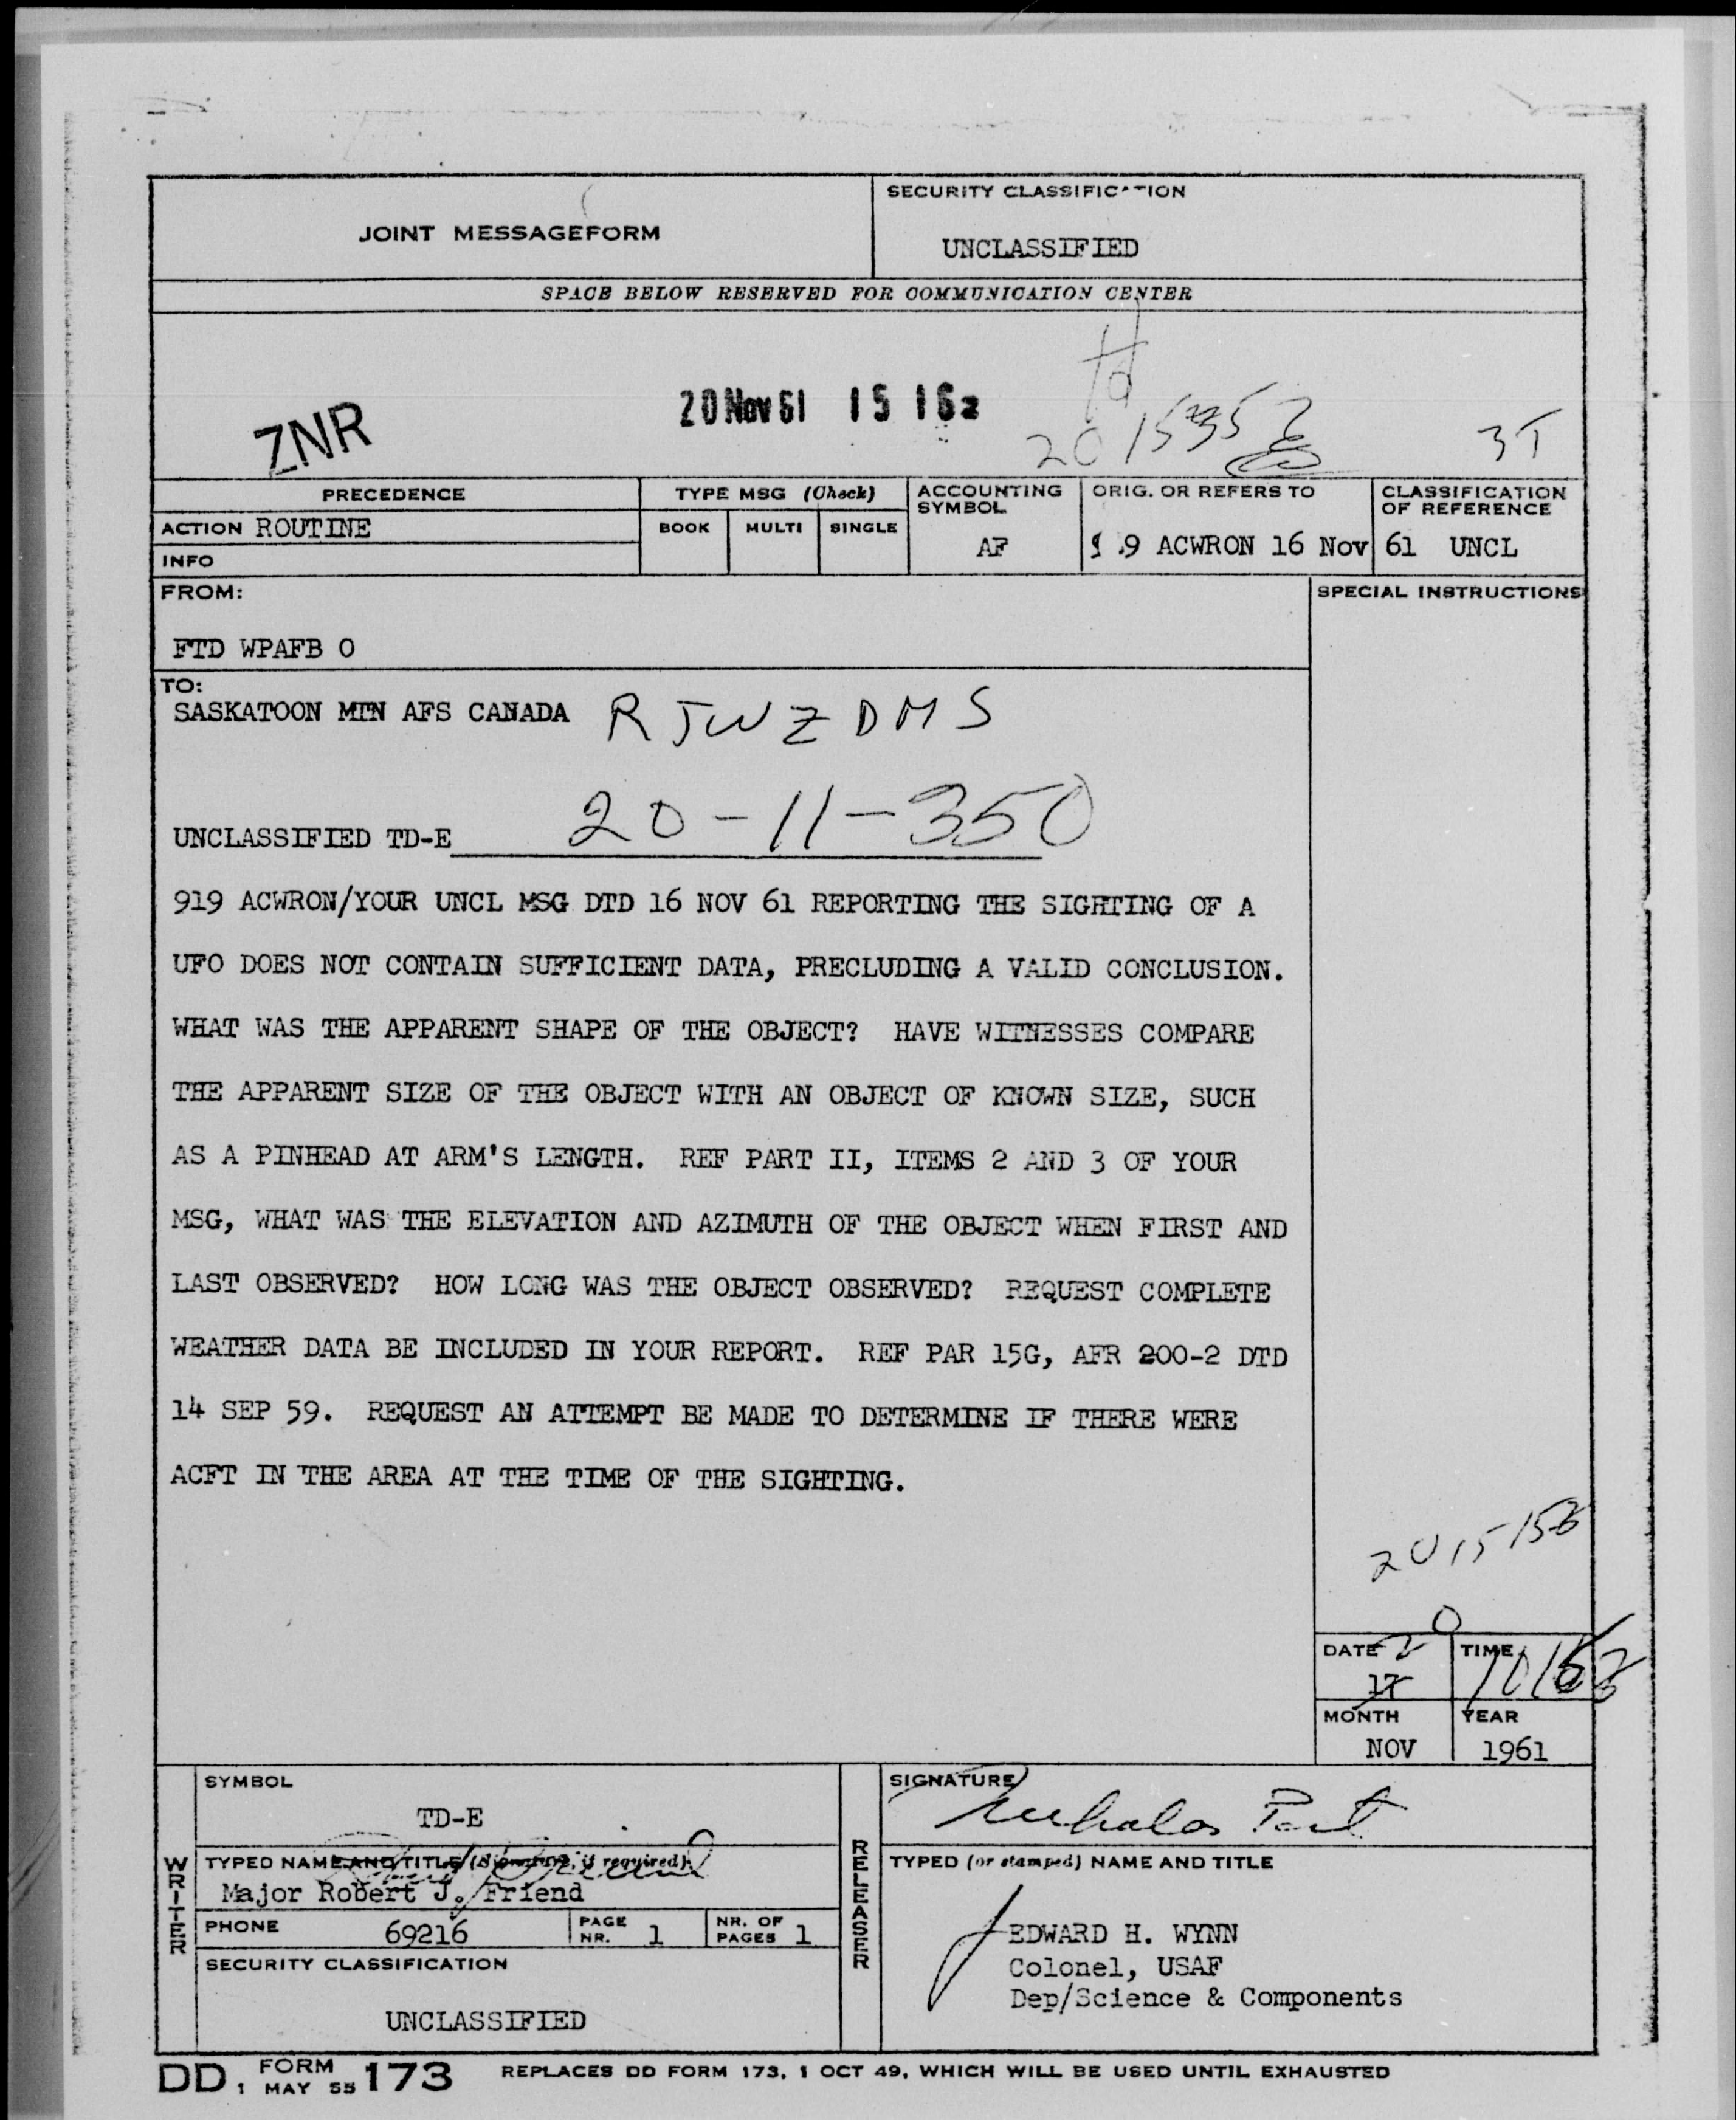 JOINT MESSAGEFORM
SECURITY CLASSIFICATION
UNCLASSIFIED
SPACE BELOW RESERVED FOR COMMUNICATION CENTER
ZNR
20 Nov 61 15 16z
3T
PRECEDENCE
TYPE MSG (Check)
ACCOUNTING SYMBOL
ORIG. OR REFERS TO
CLASSIFICATION OF REFERENCE
ACTION ROUTINE
BOOK MULTI SINGLE
AF
9 ACWRON 16 Nov 61 UNCL
INFO
FROM:
SPECIAL INSTRUCTIONS
FTD WPAFB O
TO:
SASKATOON MTN AFS CANADA RJWZDMS
UNCLASSIFIED TD-E 20-11-350
919 ACWRON/YOUR UNCL MSG DTD 16 NOV 61 REPORTING THE SIGHTING OF A
UFO DOES NOT CONTAIN SUFFICIENT DATA, PRECLUDING A VALID CONCLUSION.
WHAT WAS THE APPARENT SHAPE OF THE OBJECT? HAVE WITNESSES COMPARE
THE APPARENT SIZE OF THE OBJECT WITH AN OBJECT OF KNOWN SIZE, SUCH
AS A PINHEAD AT ARM'S LENGTH. REF PART II, ITEMS 2 AND 3 OF YOUR
MSG, WHAT WAS THE ELEVATION AND AZIMUTH OF THE OBJECT WHEN FIRST AND
LAST OBSERVED? HOW LONG WAS THE OBJECT OBSERVED? REQUEST COMPLETE
WEATHER DATA BE INCLUDED IN YOUR REPORT. REF PAR 15G, AFR 200-2 DTD
14 SEP 59. REQUEST AN ATTEMPT BE MADE TO DETERMINE IF THERE WERE
ACFT IN THE AREA AT THE TIME OF THE SIGHTING.
DATE 20
17
TIME
MONTH
NOV
YEAR
1961
WRITER
SYMBOL
TD-E
TYPED NAME AND TITLE (Signature, if required)
Major Robert J. Friend
PHONE 69216
PAGE NR. 1
NR. OF PAGES 1
SECURITY CLASSIFICATION
UNCLASSIFIED
RELEASER
SIGNATURE
TYPED (or stamped) NAME AND TITLE
EDWARD H. WYNN
Colonel, USAF
Dep/Science & Components
DD FORM 1 MAY 55 173 REPLACES DD FORM 173, 1 OCT 49, WHICH WILL BE USED UNTIL EXHAUSTED